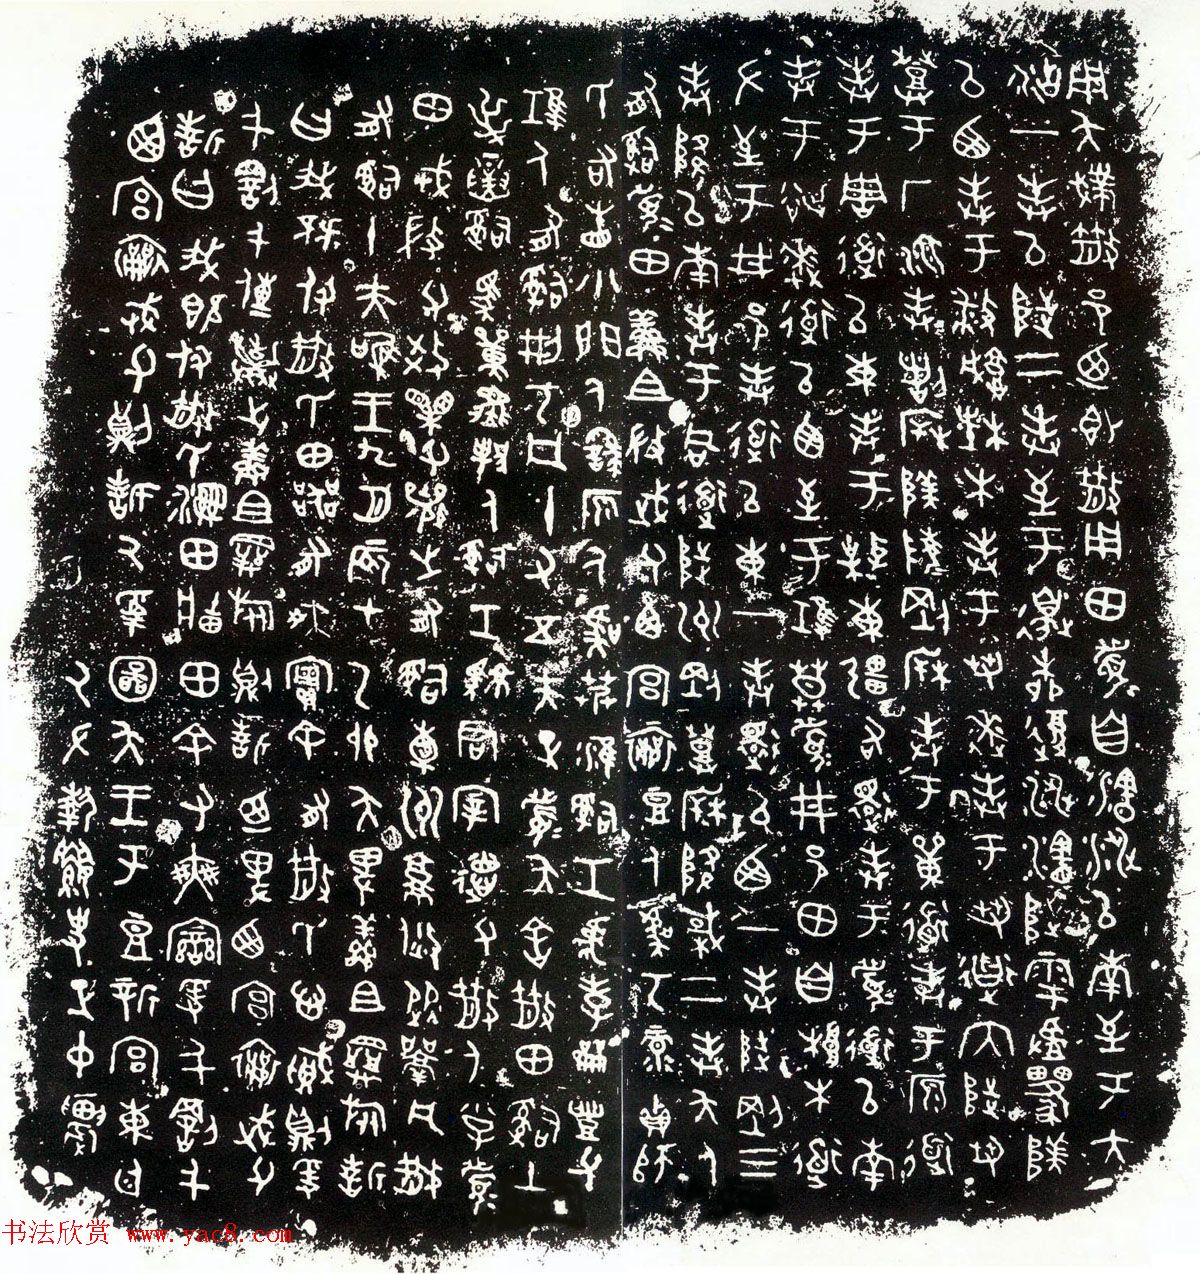 用夨撲散邑乃即散用田眉自瀗涉以南至于大
沽一封以陟二封至于邊柳復涉瀗陟雩𠭯𨽿陕
以西封于敝城楮木封于芻逨封于芻道內陟芻
登于厂湶封剖柝陕陵剛柝封于單道封于原道
封于周道以東封于𣐺東疆右還封于眉道以南
封于㣇逨道以西至于堆莫眉井邑田自根木道
左至于井邑封道以東一封還以西一封陟剛三
封降以南封于同道陟州剛登柝降棫二封夨人
有司眉田鮮且微武父西宮襄豆人虞丂彔貞師
氏右眚小門人繇原人虞艿淮司工虎孝龠豐父
堆人有司刑丂凡十又五夫正眉夨舍散田司土
屰寅司馬𡐦邦人司工駷君宰德父散人小子眉
田戎微父效𣝣父襄之有司橐州就焂從𩰫凡散
有司十夫唯王九月辰在乙卯夨俾鮮且𢍰旅誓
曰我既付散氏田器有爽實余有散氏心賊則爰
千罰千傳棄之鮮且𢍰旅則誓廼俾西宮襄武父
誓曰我既付散氏濕田𤱈田余有爽變爰千罰千
西宮襄武父則誓厥受圖夨王于豆新宮東廷
厥左執䌛史正中農
书法欣赏 www.yac8.com